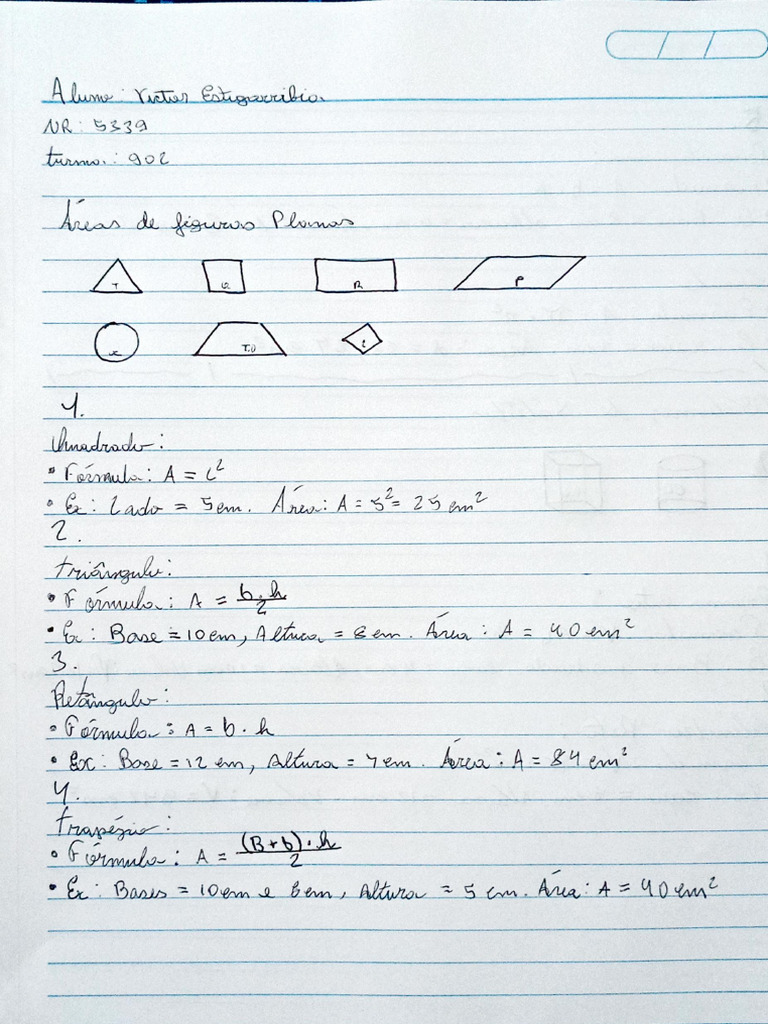 Aluno: Victor Estigarribia
NR: 5339
turma: 902
Áreas de figuras Planas
T Q R P
C T.D L
1.
Quadrado:
• Fórmula: A = L²
• Ex: Lado = 5cm. Área: A = 5² = 25 cm²
2.
Triângulo:
• Fórmula: A = b.h/2
• Ex: Base = 10cm, Altura = 8cm. Área: A = 40cm²
3.
Retângulo:
• Fórmula: A = b . h
• Ex: Base = 12 cm, Altura = 7cm. Área: A = 84 cm²
4.
Trapézio:
• Fórmula: A = (B+b).h/2
• Ex: Bases = 10cm e 6cm, Altura = 5 cm. Área: A = 40cm²